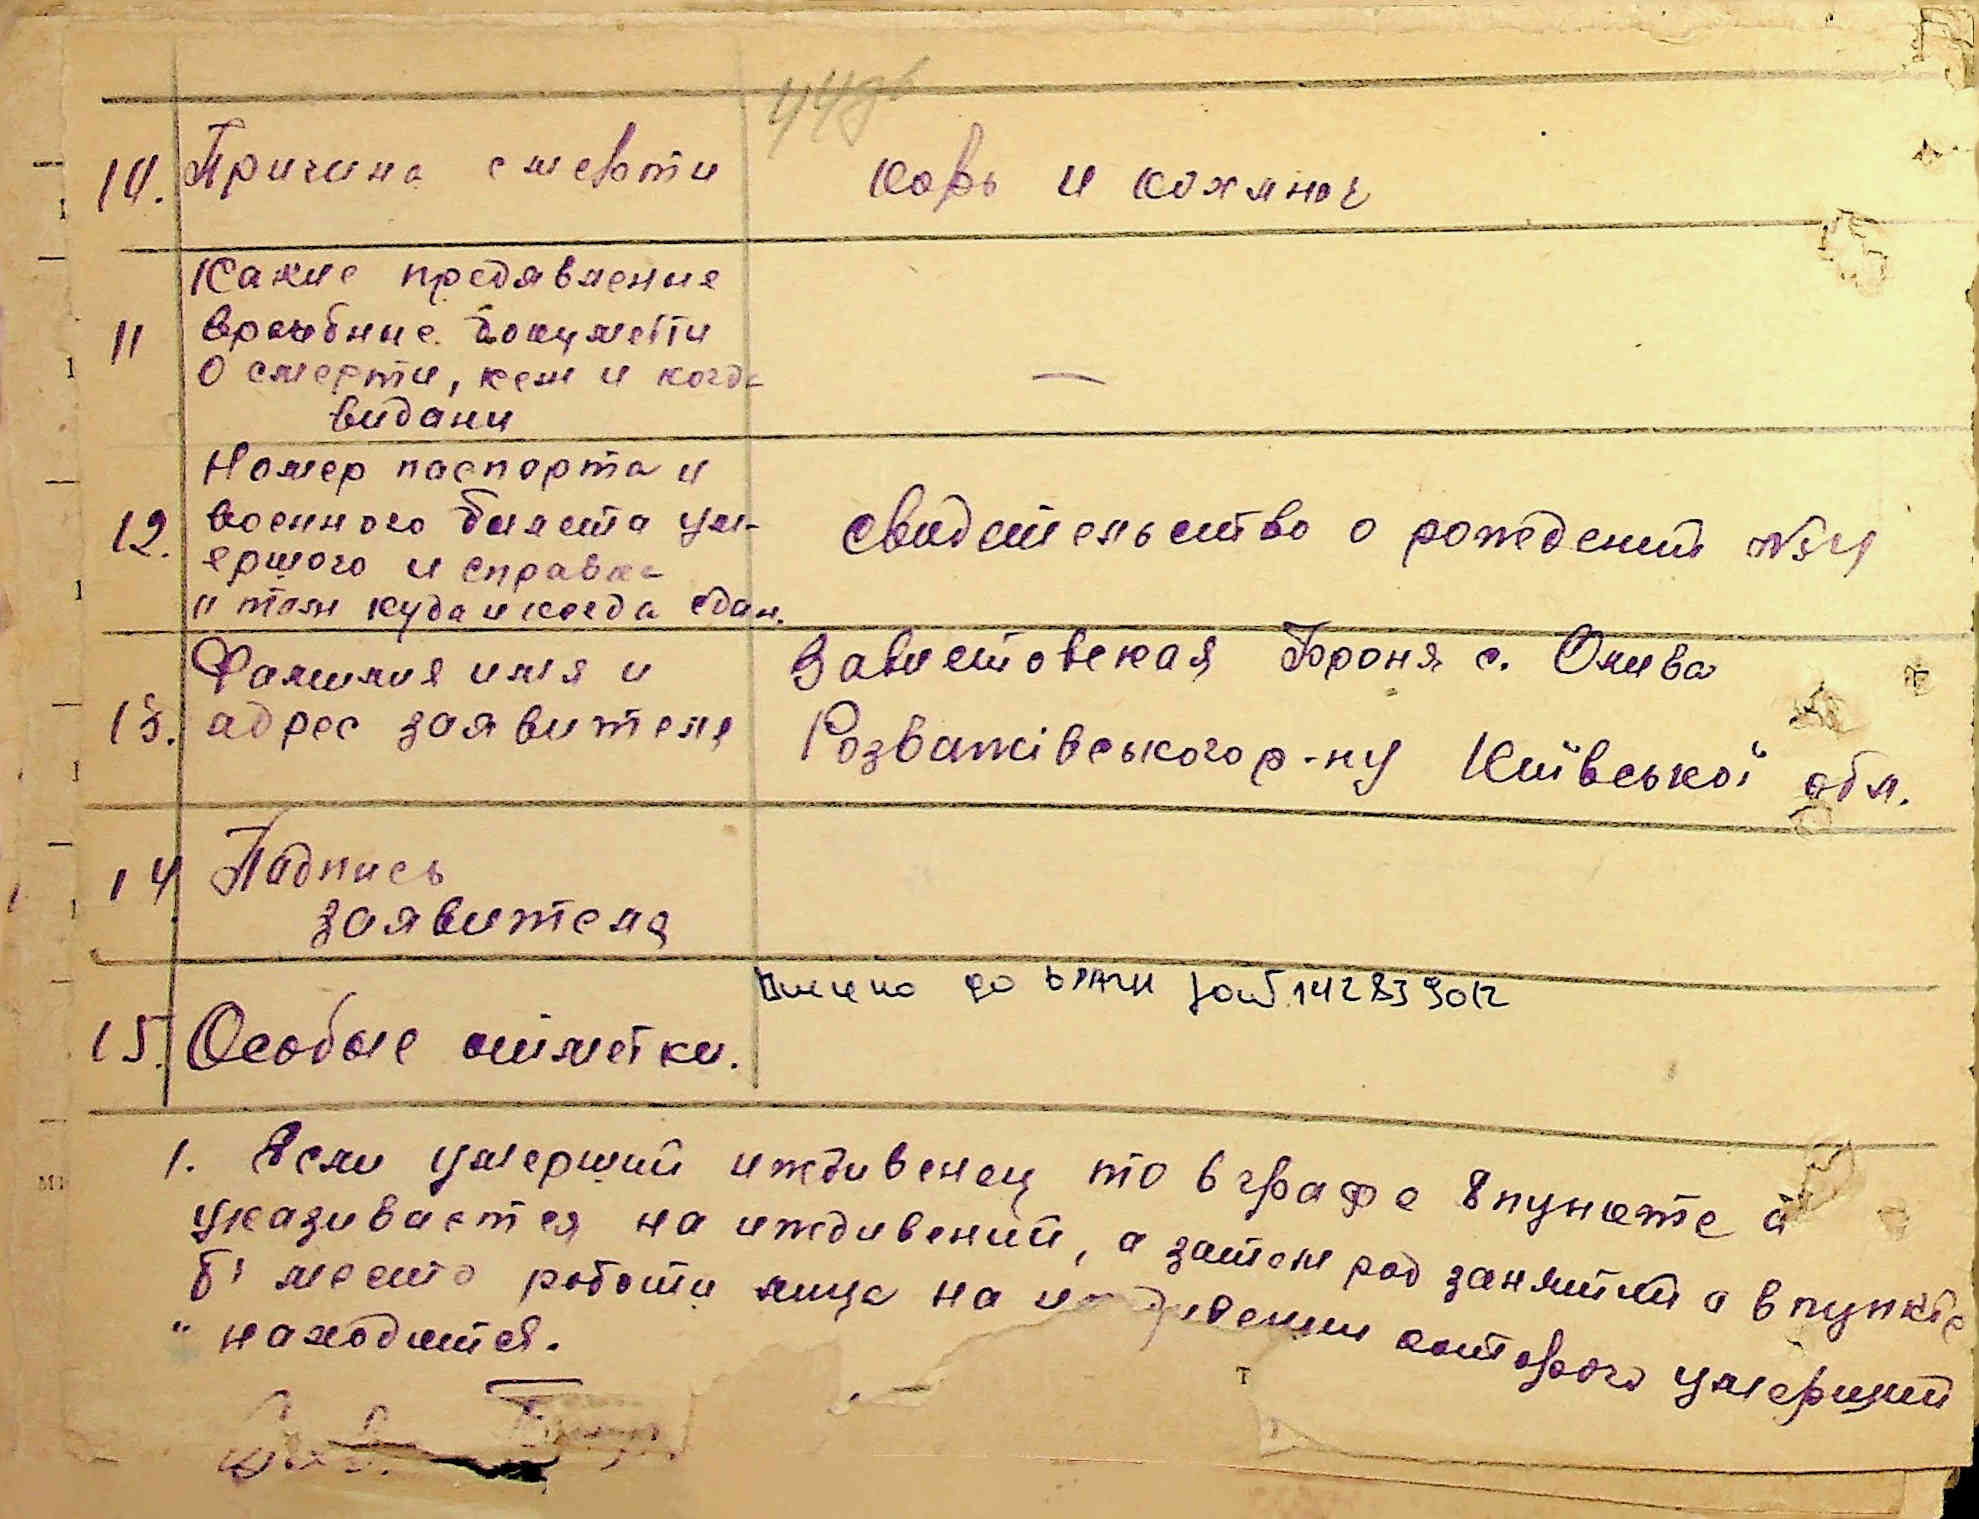 44
10. Причина смерти корь и
Какие предявленые
11 врачебные документи
о смерти, кем и когда —
видани
Номер паспорта и
12. военного билета ум- свидетельство о рождений №4
ершого и справка
и там куда и когда сдан.
Фамилия имя и Завистовская Броня с. Олива
13. адрес заявителя Розважівського р-ну Київської обл.
14 Падпись
заявителя
Внесено до ДРАЦС 14283
15. Особые отметки.
1. Если умерший иждивенец то в графе 8 пункте а
указивается на иждивений, а затем род занятий а в пункте
б' место роботи лица на иждивении которого умерший
" находится.